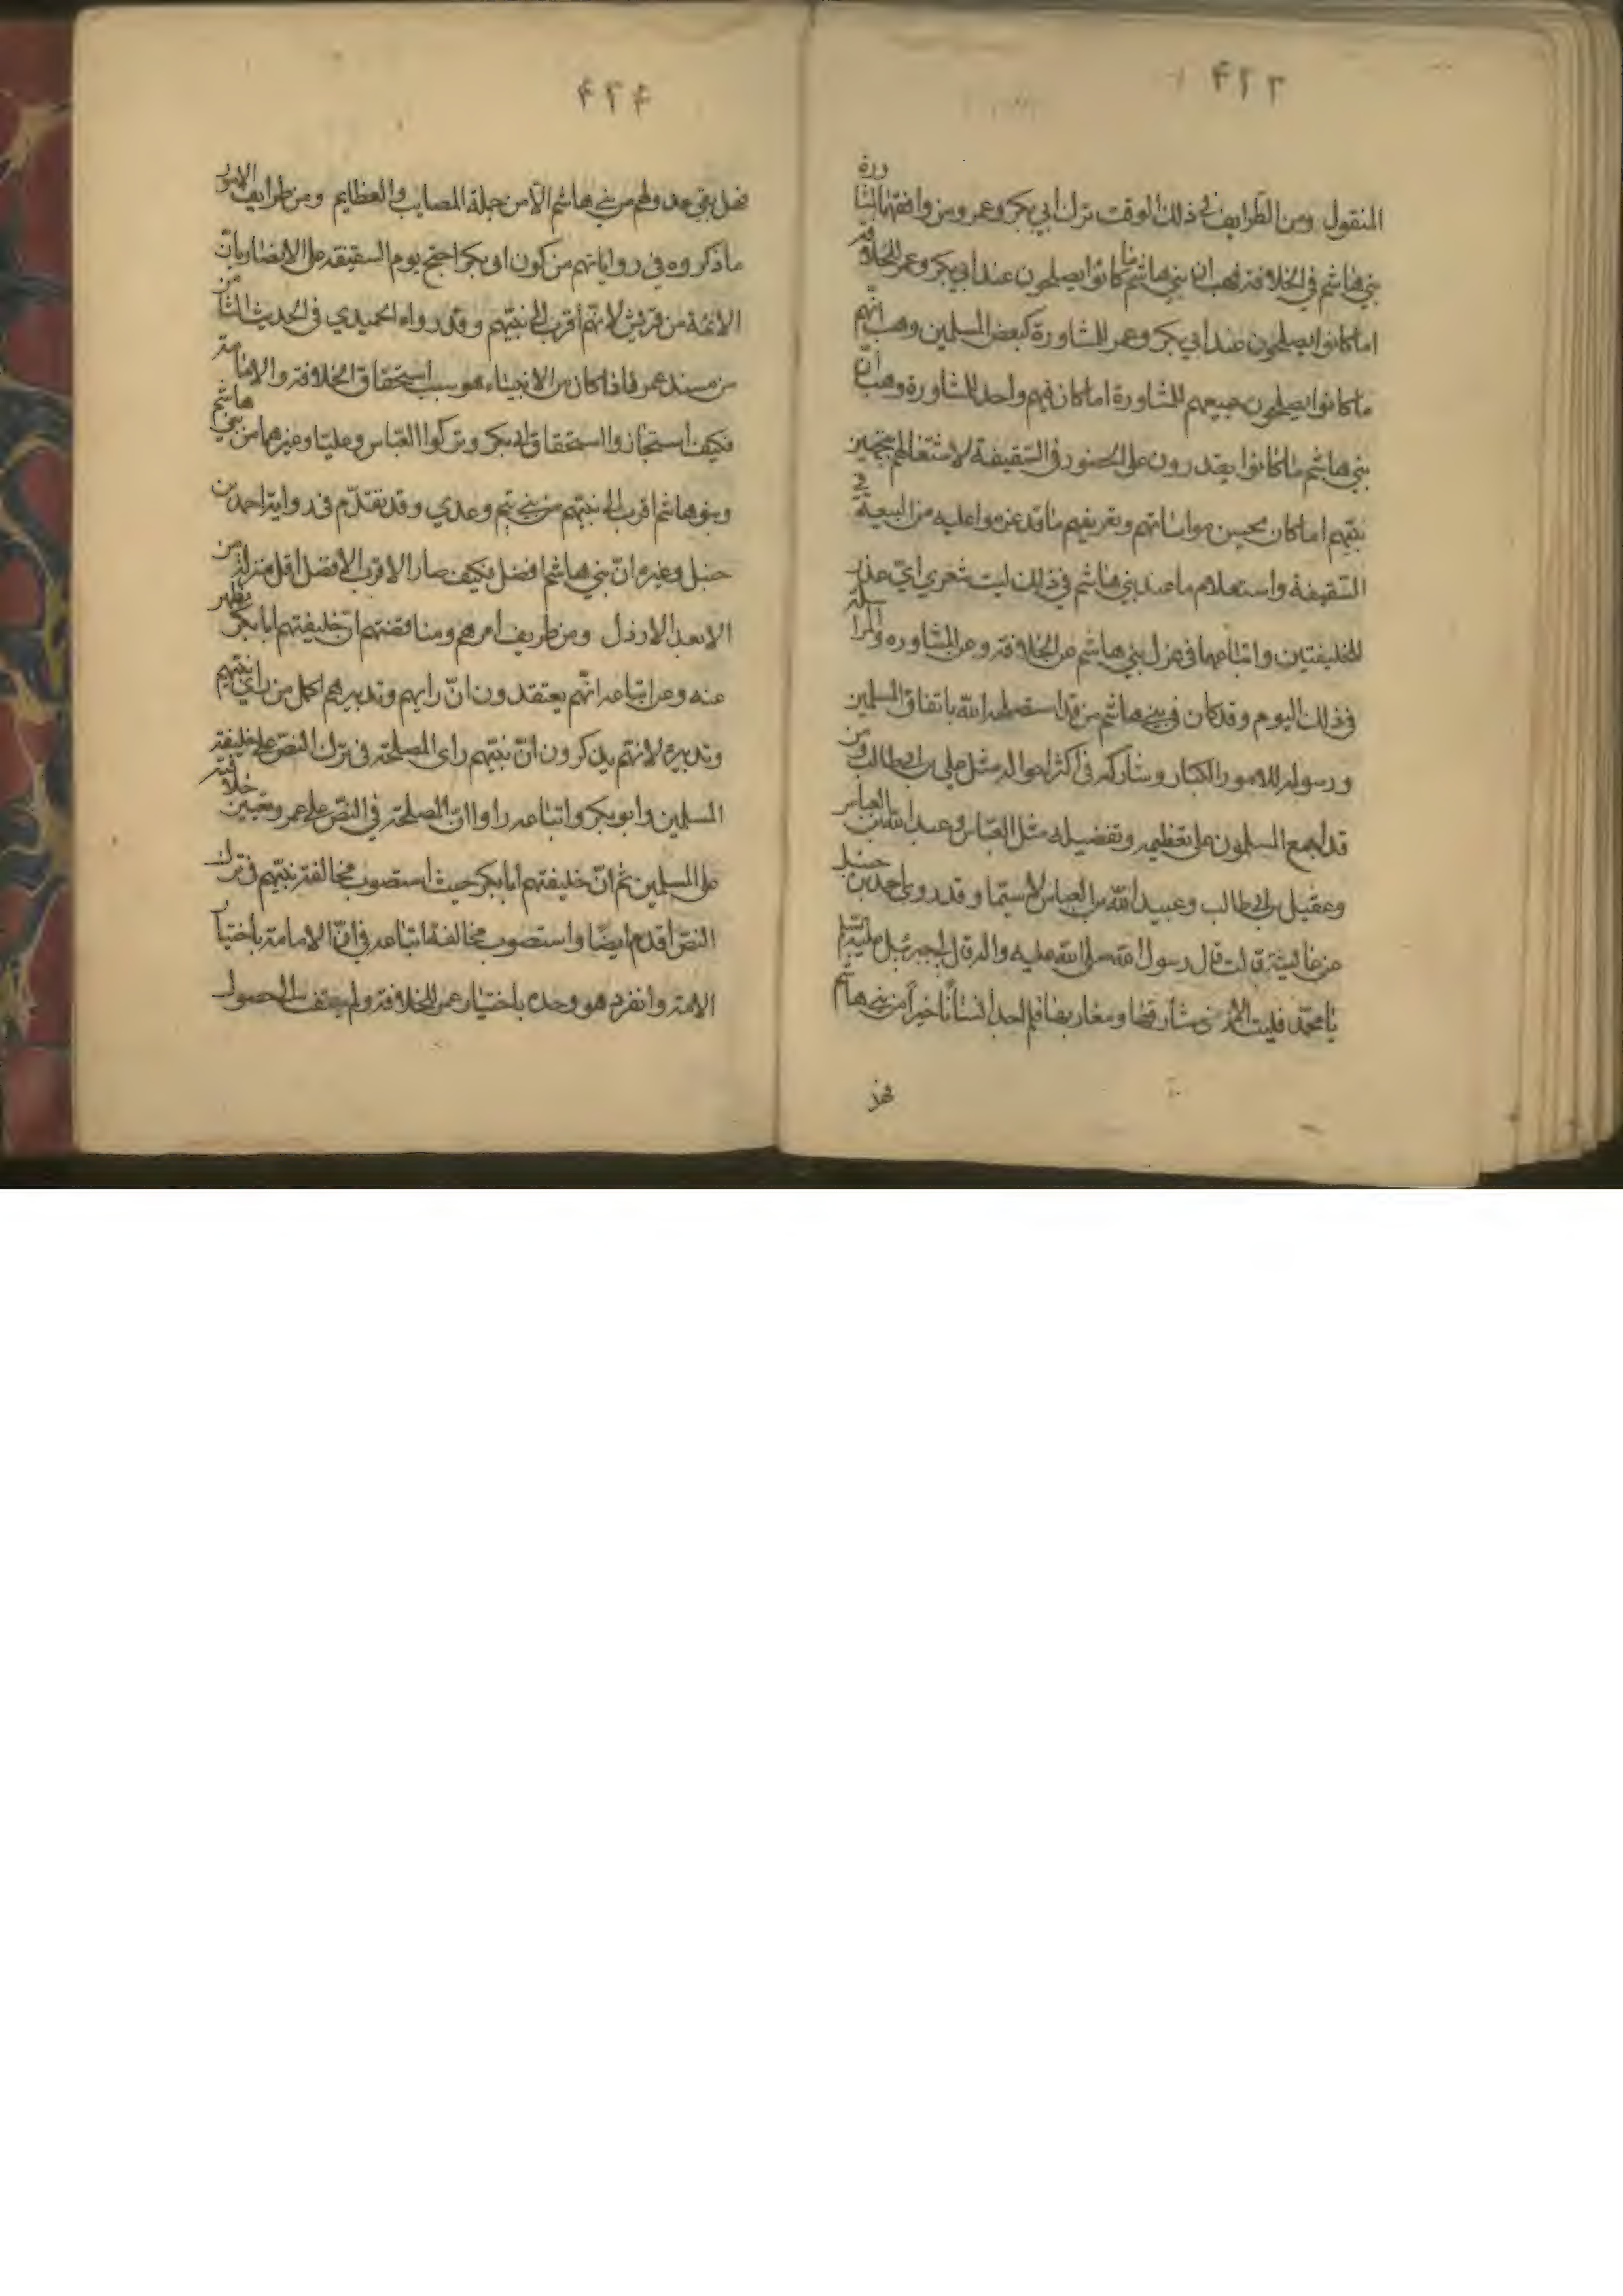 ۴۲۳
المنقول ومن الطرايف في ذلك الوقت ترك ابي بكر وعمر ومن وافقهما المشاورة
بني هاشم في الخلافة فهب ان بني هاشم ما كانوا يصلحون عند ابي بكر وعمر للخلافة
اما كانوا يصلحون عند ابي بكر وعمر للمشاورة كبعض المسلمين وهب انهم
ما كانوا يصلحون جميعهم للمشاورة اما كان فيهم واحد للمشاورة وهب ان
بني هاشم ما كانوا يقدرون على الحضور في السقيفة لاشتغالهم بتجهيز
نبيهم اما كان يحسن مواساتهم وتعريفهم ما قد عزموا عليه من البيعة في
السقيفة واستعلام ما عند بني هاشم في ذلك ليت شعري اي عذر
للخليفتين واتباعهما في عزل بني هاشم عن الخلافة وعن المشاوره والمراسلة
في ذلك اليوم وقد كان في بني هاشم من قد استصلحه الله باتفاق المسلمين
ورسوله للامور الكبار وشاركه في اكثر احواله مثل علي بن ابي طالب ومن
قد اجمع المسلمون على تعظيمه وتفضيله مثل العباس وعبد الله بن العباس
وعقيل بن ابي طالب وعبيد الله بن العباس لا سيما وقد روى احمد بن حنبل
عن عائشة قالت قال رسول الله صلى الله عليه واله قال لي جبرئيل عليه السلم
يا محمد قلبت الارض مشارقها ومغاربها فلم اجد انسانا خيرا من بني هاشم
فهل
۴۲۴
فهل بقي عدولهم من بني هاشم الا من جملة المصايب والعظايم ومن طرايف الامور
ما ذكروه في رواياتهم من كون ابى بكر احتج يوم السقيفة على الانصار بان
الائمة من قريش لانهم اقرب الى نبيهم وقد رواه الحميدي في الحديث الثامن
من مسند عمر فاذا كان من الانبياء هو سبب استحقاق الخلافة والامامة
فكيف استجازوا استحقاق ابي بكر وتركوا العباس وعليا وغيرهما من بني هاشم
وبنو هاشم اقرب الى نبيهم من بني تيم وعدي وقد تقدم في رواية احمد بن
حنبل وغيره ان بني هاشم افضل فكيف صار الاقرب الافضل اقل منزلة من
الابعد الارذل ومن طريف امرهم ومناقضتهم ان خليفتهم ابا بكر يظهر
عنه وعن اتباعه انهم يعتقدون ان رايهم وتدبيرهم اكمل من راي نبيهم
وتدبيره لانهم يذكرون ان نبيهم راى المصلحة في ترك النص على خليفة
المسلمين وابو بكر واتباعه راوا ان المصلحة في النص على عمر وتعيين خلافته
على المسلمين ثم ان خليفتهم ابا بكر حيث استصوب مخالفة نبيهم في ترك
النص اقدم ايضا واستصوب مخالفة اتباعه في ان الامامة باختيار
الامة وانفرد هو وحده باختيار عمر للخلافة ولم يعتف الى حصول